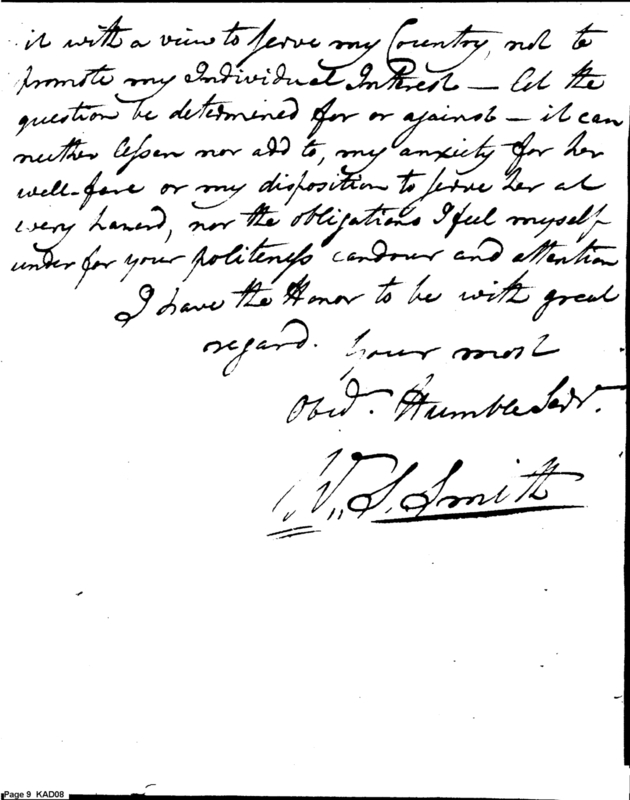 it with a view to serve my Country, not to
promote my Individual Interest — let the
question be determined for or against — it can
neither lessen nor add to, my anxiety for her
well-fare or my disposition to serve her at
every hazard, nor the obligations I feel myself
under for your politeness candour and attention
I have the Honor to be with great
regard. Your most
Obed. Humble Servr.
W,, S. Smith
Page 9 KAD08